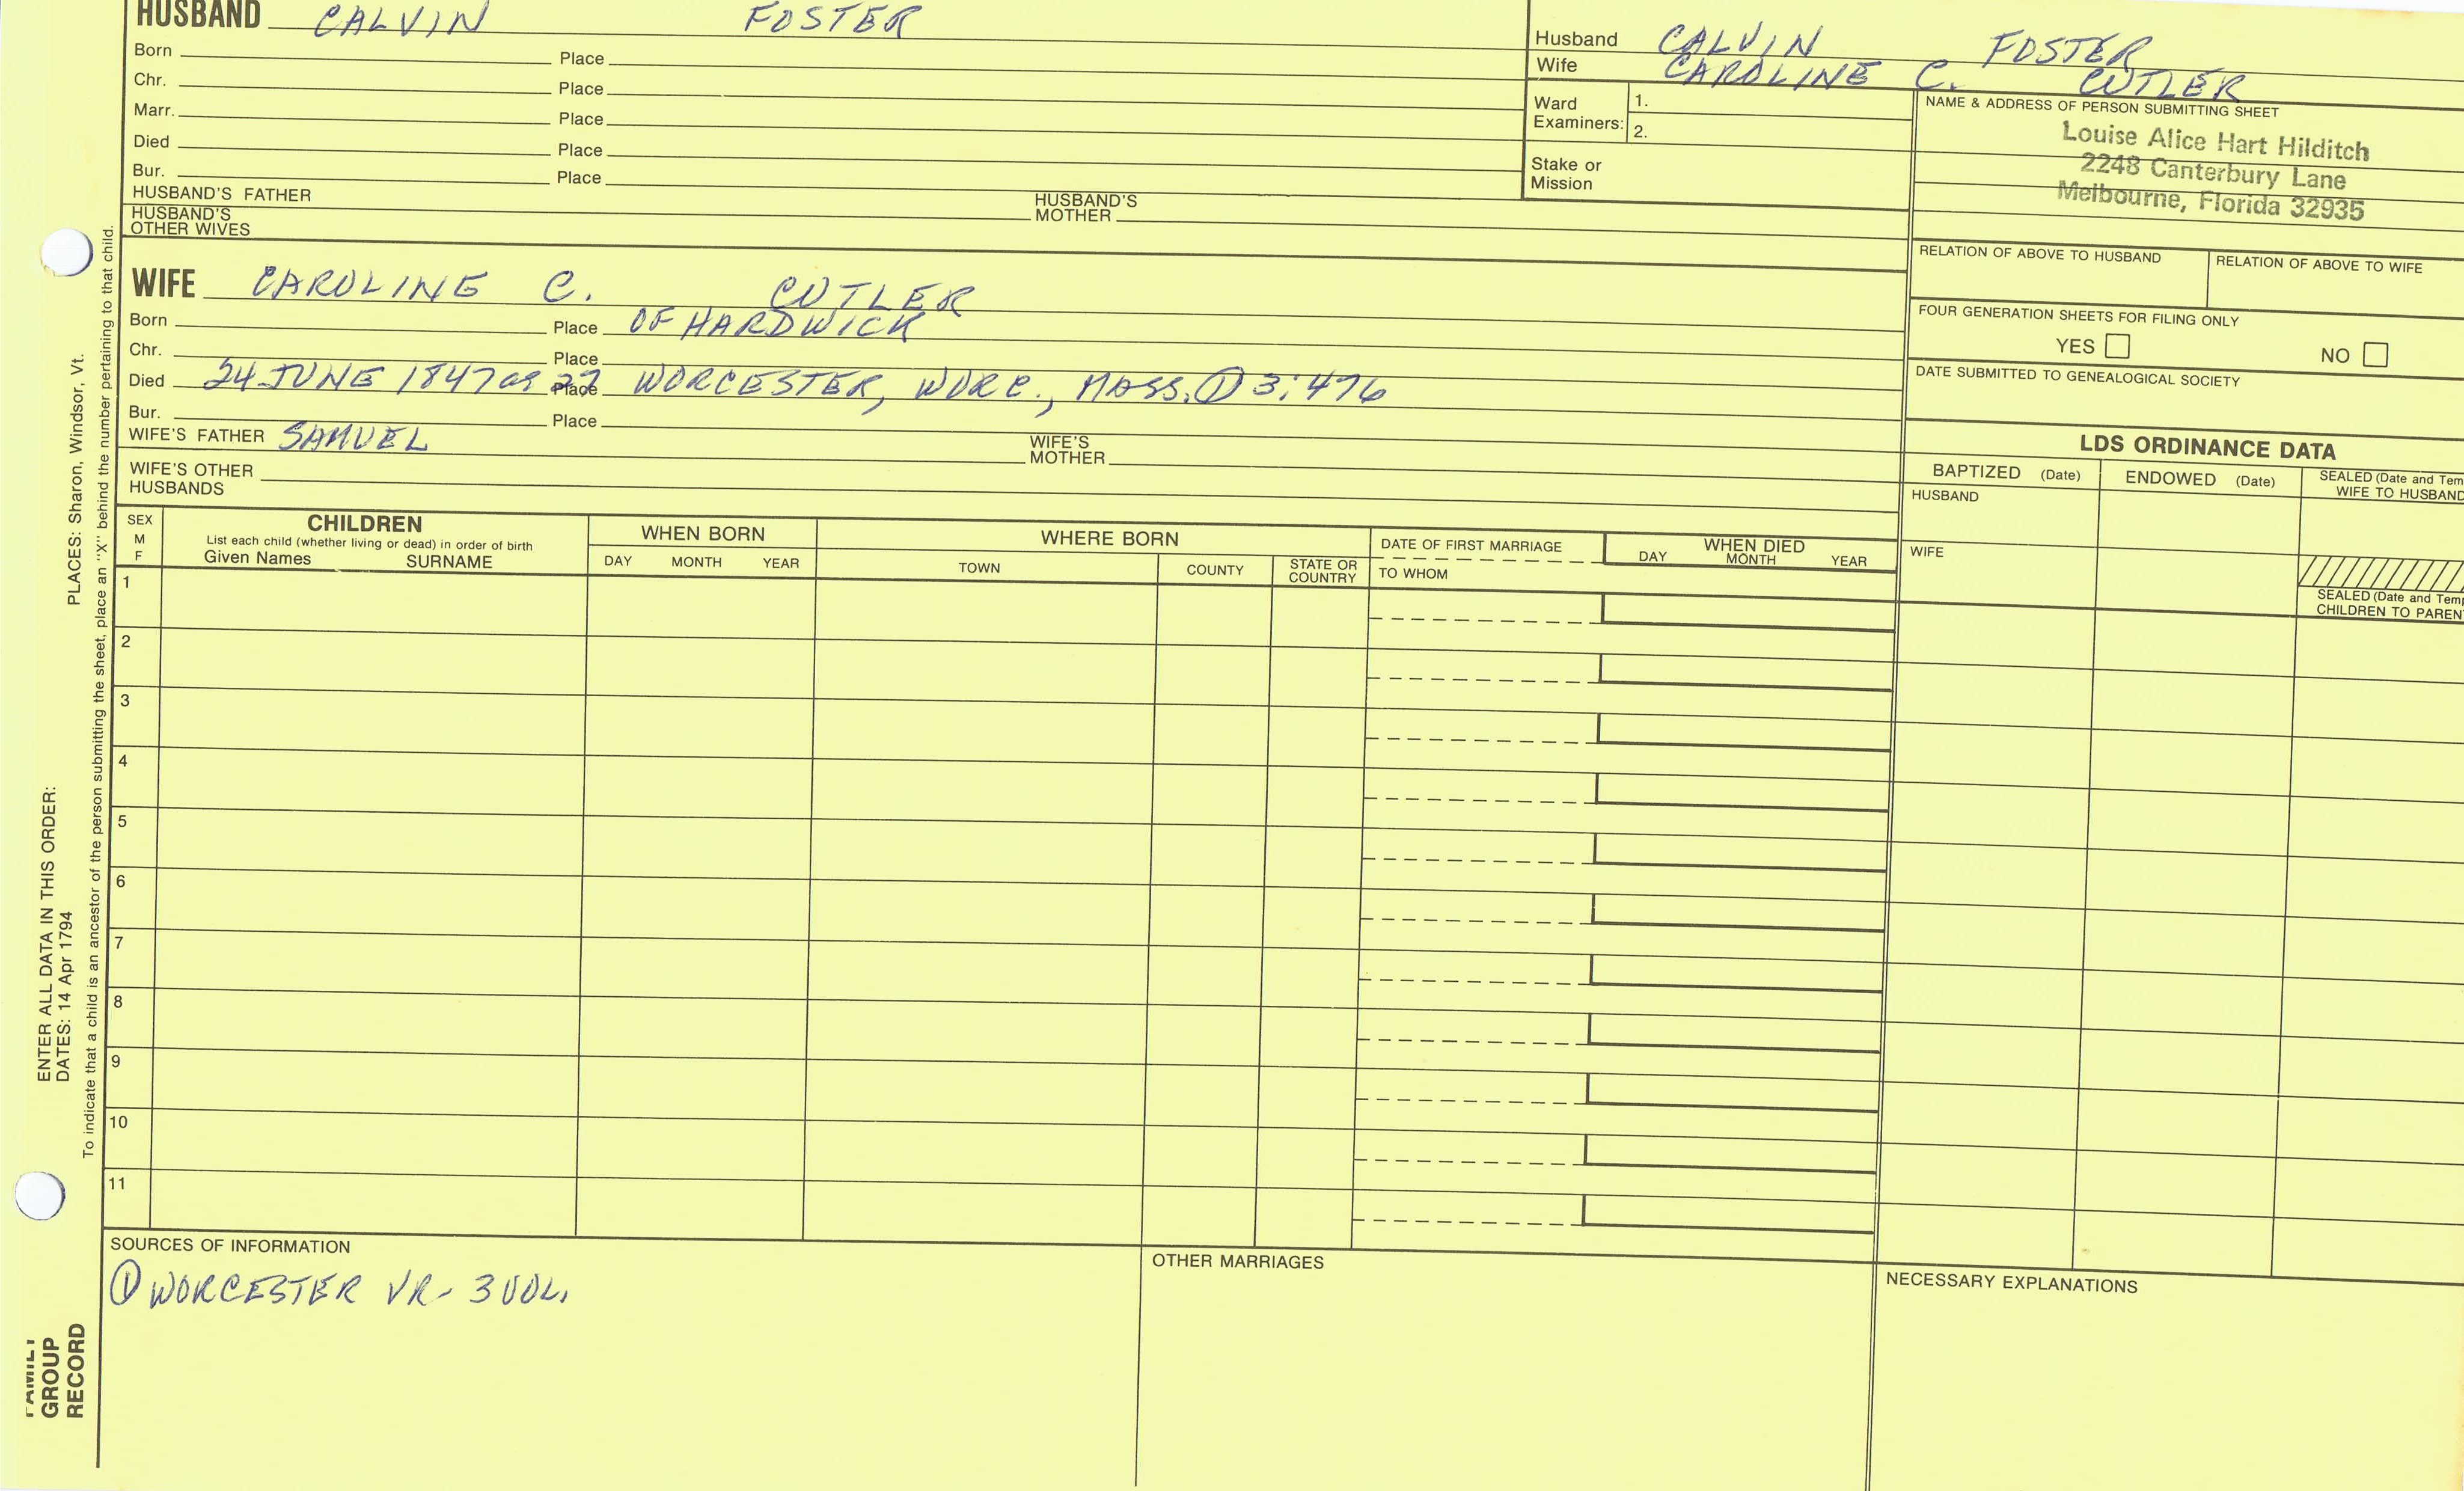 HUSBAND CALVIN FOSTER
Born Place
Chr. Place
Marr. Place
Died Place
Bur. Place
HUSBAND'S FATHER HUSBAND'S MOTHER
HUSBAND'S OTHER WIVES
Husband CALVIN FOSTER
Wife CAROLINE C. CUTLER
Ward Examiners: 1.
2.
Stake or Mission
NAME & ADDRESS OF PERSON SUBMITTING SHEET
Louise Alice Hart Hilditch
2248 Canterbury Lane
Melbourne, Florida 32935
RELATION OF ABOVE TO HUSBAND RELATION OF ABOVE TO WIFE
FOUR GENERATION SHEETS FOR FILING ONLY
YES NO
DATE SUBMITTED TO GENEALOGICAL SOCIETY
WIFE CAROLINE C. CUTLER
Born Place OF HARDWICK
Chr. Place
Died 24 JUNE 1847 as 27 Place WORCESTER, WORC., MASS. ① 3:476
Bur. Place
WIFE'S FATHER SAMUEL WIFE'S MOTHER
WIFE'S OTHER HUSBANDS
LDS ORDINANCE DATA
BAPTIZED (Date) ENDOWED (Date) SEALED (Date and Tem
WIFE TO HUSBAND
HUSBAND
WIFE
SEALED (Date and Temp
CHILDREN TO PARENT
SEX
M
F
CHILDREN
List each child (whether living or dead) in order of birth
Given Names SURNAME
WHEN BORN
DAY MONTH YEAR
WHERE BORN
TOWN COUNTY STATE OR COUNTRY
DATE OF FIRST MARRIAGE
TO WHOM
WHEN DIED
DAY MONTH YEAR
1
2
3
4
5
6
7
8
9
10
11
SOURCES OF INFORMATION
① WORCESTER VR- 3 VOL.
OTHER MARRIAGES
NECESSARY EXPLANATIONS
ENTER ALL DATA IN THIS ORDER:
DATES: 14 Apr 1794 PLACES: Sharon, Windsor, Vt.
To indicate that a child is an ancestor of the person submitting the sheet, place an "X" behind the number pertaining to that child.
FAMILY
GROUP
RECORD